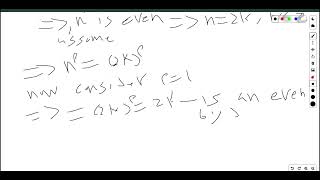 => n is even => n=2k,
assume
=> n^p = (2k)^p
now consider p=1
=> = (2k)^p = 2k — is an even
by